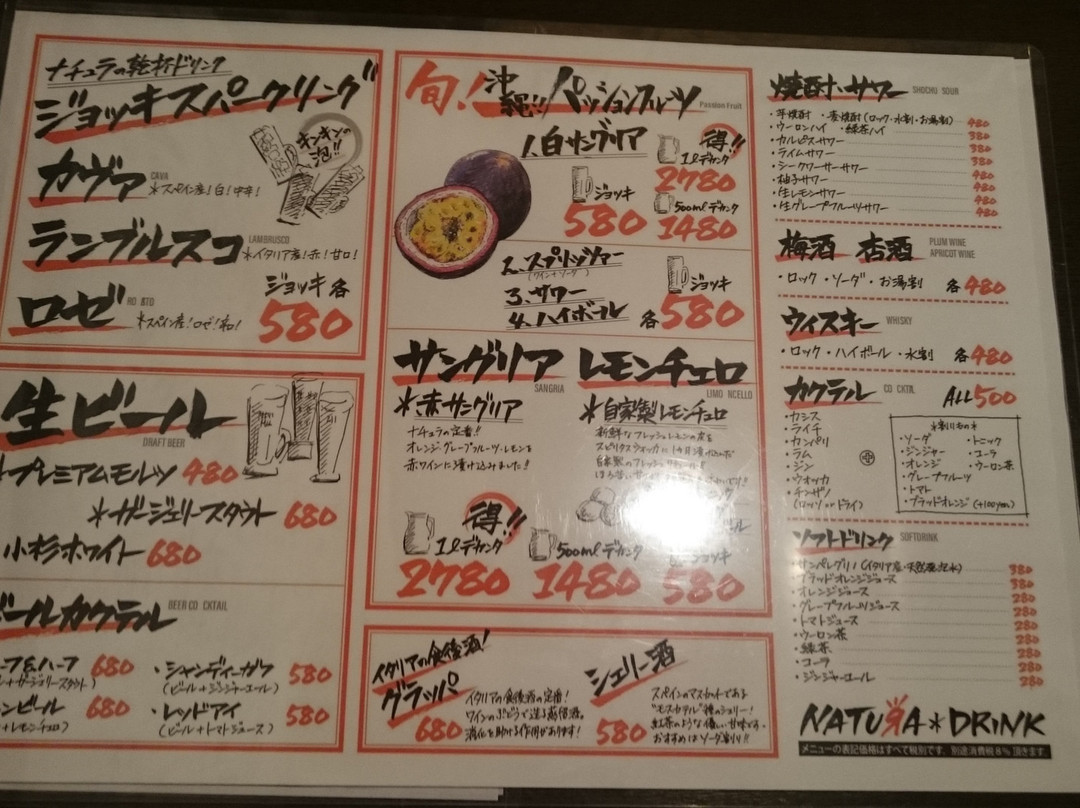 ナチュラの乾杯ドリンク
ジョッキスパークリング
キンキンの泡!!
カヴァ CAVA
*スペイン産!白!中辛!
ランブルスコ LAMBRUSCO
*イタリア産!赤!甘口!
ロゼ
*スペイン産!ロゼ!
ジョッキ各
580
生ビール
DRAFT BEER
プレミアムモルツ 480
*ガージェリースタウト 680
小杉ホワイト 680
ールカクテル BEER CO CKTAIL
ーフ&ハーフ 680
+ガージェリースタウト)
ンビール 680
+レモンチェロ)
・シャンディーガフ 580
(ビール+ジンジャーエール)
・レッドアイ 580
(ビール+トマトジュース)
旬!沖縄!!パッションフルーツ Passion Fruit
1.白サングリア
得!!
1ℓデカンタ
2780
ジョッキ
580
500mlデカンタ
1480
2.スプリッツァー
(ワイン+ソーダ)
3.サワー
4.ハイボール
ジョッキ
各580
サングリア SANGRIA
*赤サングリア
ナチュラの定番!!
オレンジ・グレープフルーツ・レモンを
赤ワインに漬け込みました!
レモンチェロ LIMO NCELLO
*自家製レモンチェロ
新鮮なフレッシュレモンの皮を
スピリタスウォッカに1ヶ月漬け込んだ
得!!
1ℓデカンタ
2780
500mlデカンタ
1480
ジョッキ
580
イタリアの食後酒!
グラッパ
680
イタリアの食後酒の定番!
ワインのぶどうで造る蒸留酒。
消化を助ける作用があります!
シェリー酒
580
スペインのマスカットである
"モスカテル"種のシェリー!
紅茶のような優しい甘味です。
おすすめはソーダ割り!!
焼酎・サワー SHOCHU SOUR
・芋焼酎 ・麦焼酎(ロック・水割・お湯割) 480
・ウーロンハイ ・緑茶ハイ 380
・カルピスサワー 380
・ライムサワー 380
・シークワーサーサワー 480
・柚子サワー 480
・生レモンサワー 480
・生グレープフルーツサワー 480
梅酒 杏酒 PLUM WINE APRICOT WINE
・ロック・ソーダ・お湯割 各480
ウィスキー WHISKY
・ロック・ハイボール・水割 各480
カクテル CO CKTIL ALL500
・カシス
・ライチ
・カンパリ
・ラム
・ジン
・ウォッカ
・チンザノ
(ロッソ or ドライ)
*割りもの*
・ソーダ ・トニック
・ジンジャー ・コーラ
・オレンジ ・ウーロン茶
・グレープフルーツ
・トマト
・ブラッドオレンジ (+100yen)
ソフトドリンク SOFTDRINK
・サンペレグリノ(イタリア産・天然炭酸水) 380
・ブラッドオレンジジュース 380
・オレンジジュース 280
・グレープフルーツジュース 280
・トマトジュース 280
・ウーロン茶 280
・緑茶 280
・コーラ 280
・ジンジャーエール 280
NATUЯA*DRiNK
メニューの表記価格はすべて税別です。別途消費税8%頂きます。